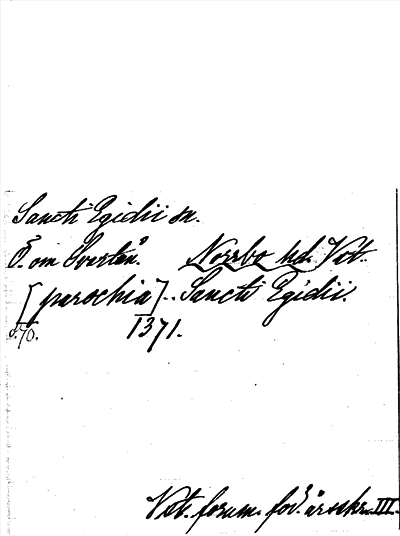 Sancti Egidii sn.
Ö. om Svartån. Norrbo hd. Vst.
[parochia].. Sancti Egidii.
s. 70. 1371.
Vst. fornm. för. årsskr. III.